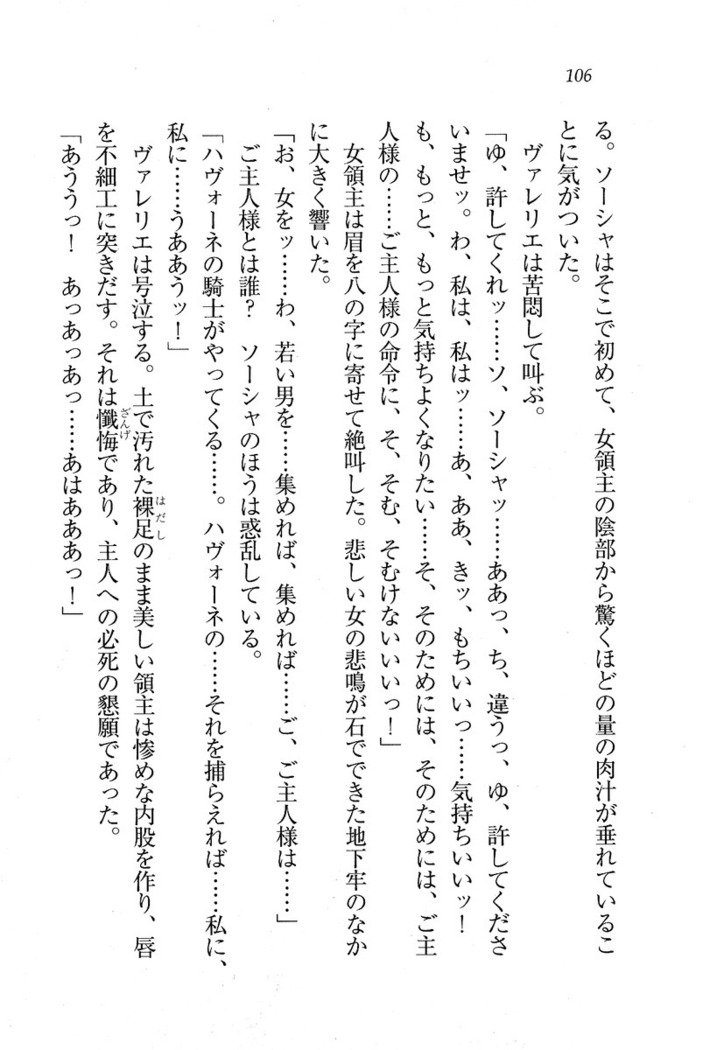 106
る。ソーシャはそこで初めて、女領主の陰部から驚くほどの量の肉汁が垂れているこ
とに気がついた。
ヴァレリエは苦悶して叫ぶ。
「ゆ、許してくれッ……ソ、ソーシャッ……ああっ、ち、違うっ、ゆ、許してくださ
いませッ。わ、私は、私はッ……あ、ああ、きッ、もちいいっ……気持ちいいッ！
も、もっと、もっと気持ちよくなりたい……そ、そのためには、そのためには、ご主
人様の……ご主人様の命令に、そ、そむ、そむけないいいっ！」
女領主は眉を八の字に寄せて絶叫した。悲しい女の悲鳴が石でできた地下牢のなか
に大きく響いた。
「お、女をッ……わ、若い男を……集めれば、集めれば……ご、ご主人様は……」
ご主人様とは誰？　ソーシャのほうは惑乱している。
「ハヴォーネの騎士がやってくる……。ハヴォーネの……それを捕らえれば……私に、
私に……うああうッ！」
ヴァレリエは号泣する。土で汚れた裸足はだしのまま美しい領主は惨めな内股を作り、唇
を不細工に突きだす。それは懺悔ざんげであり、主人への必死の懇願であった。
「あううっ！　あっあっあっ……あはあああっ！」